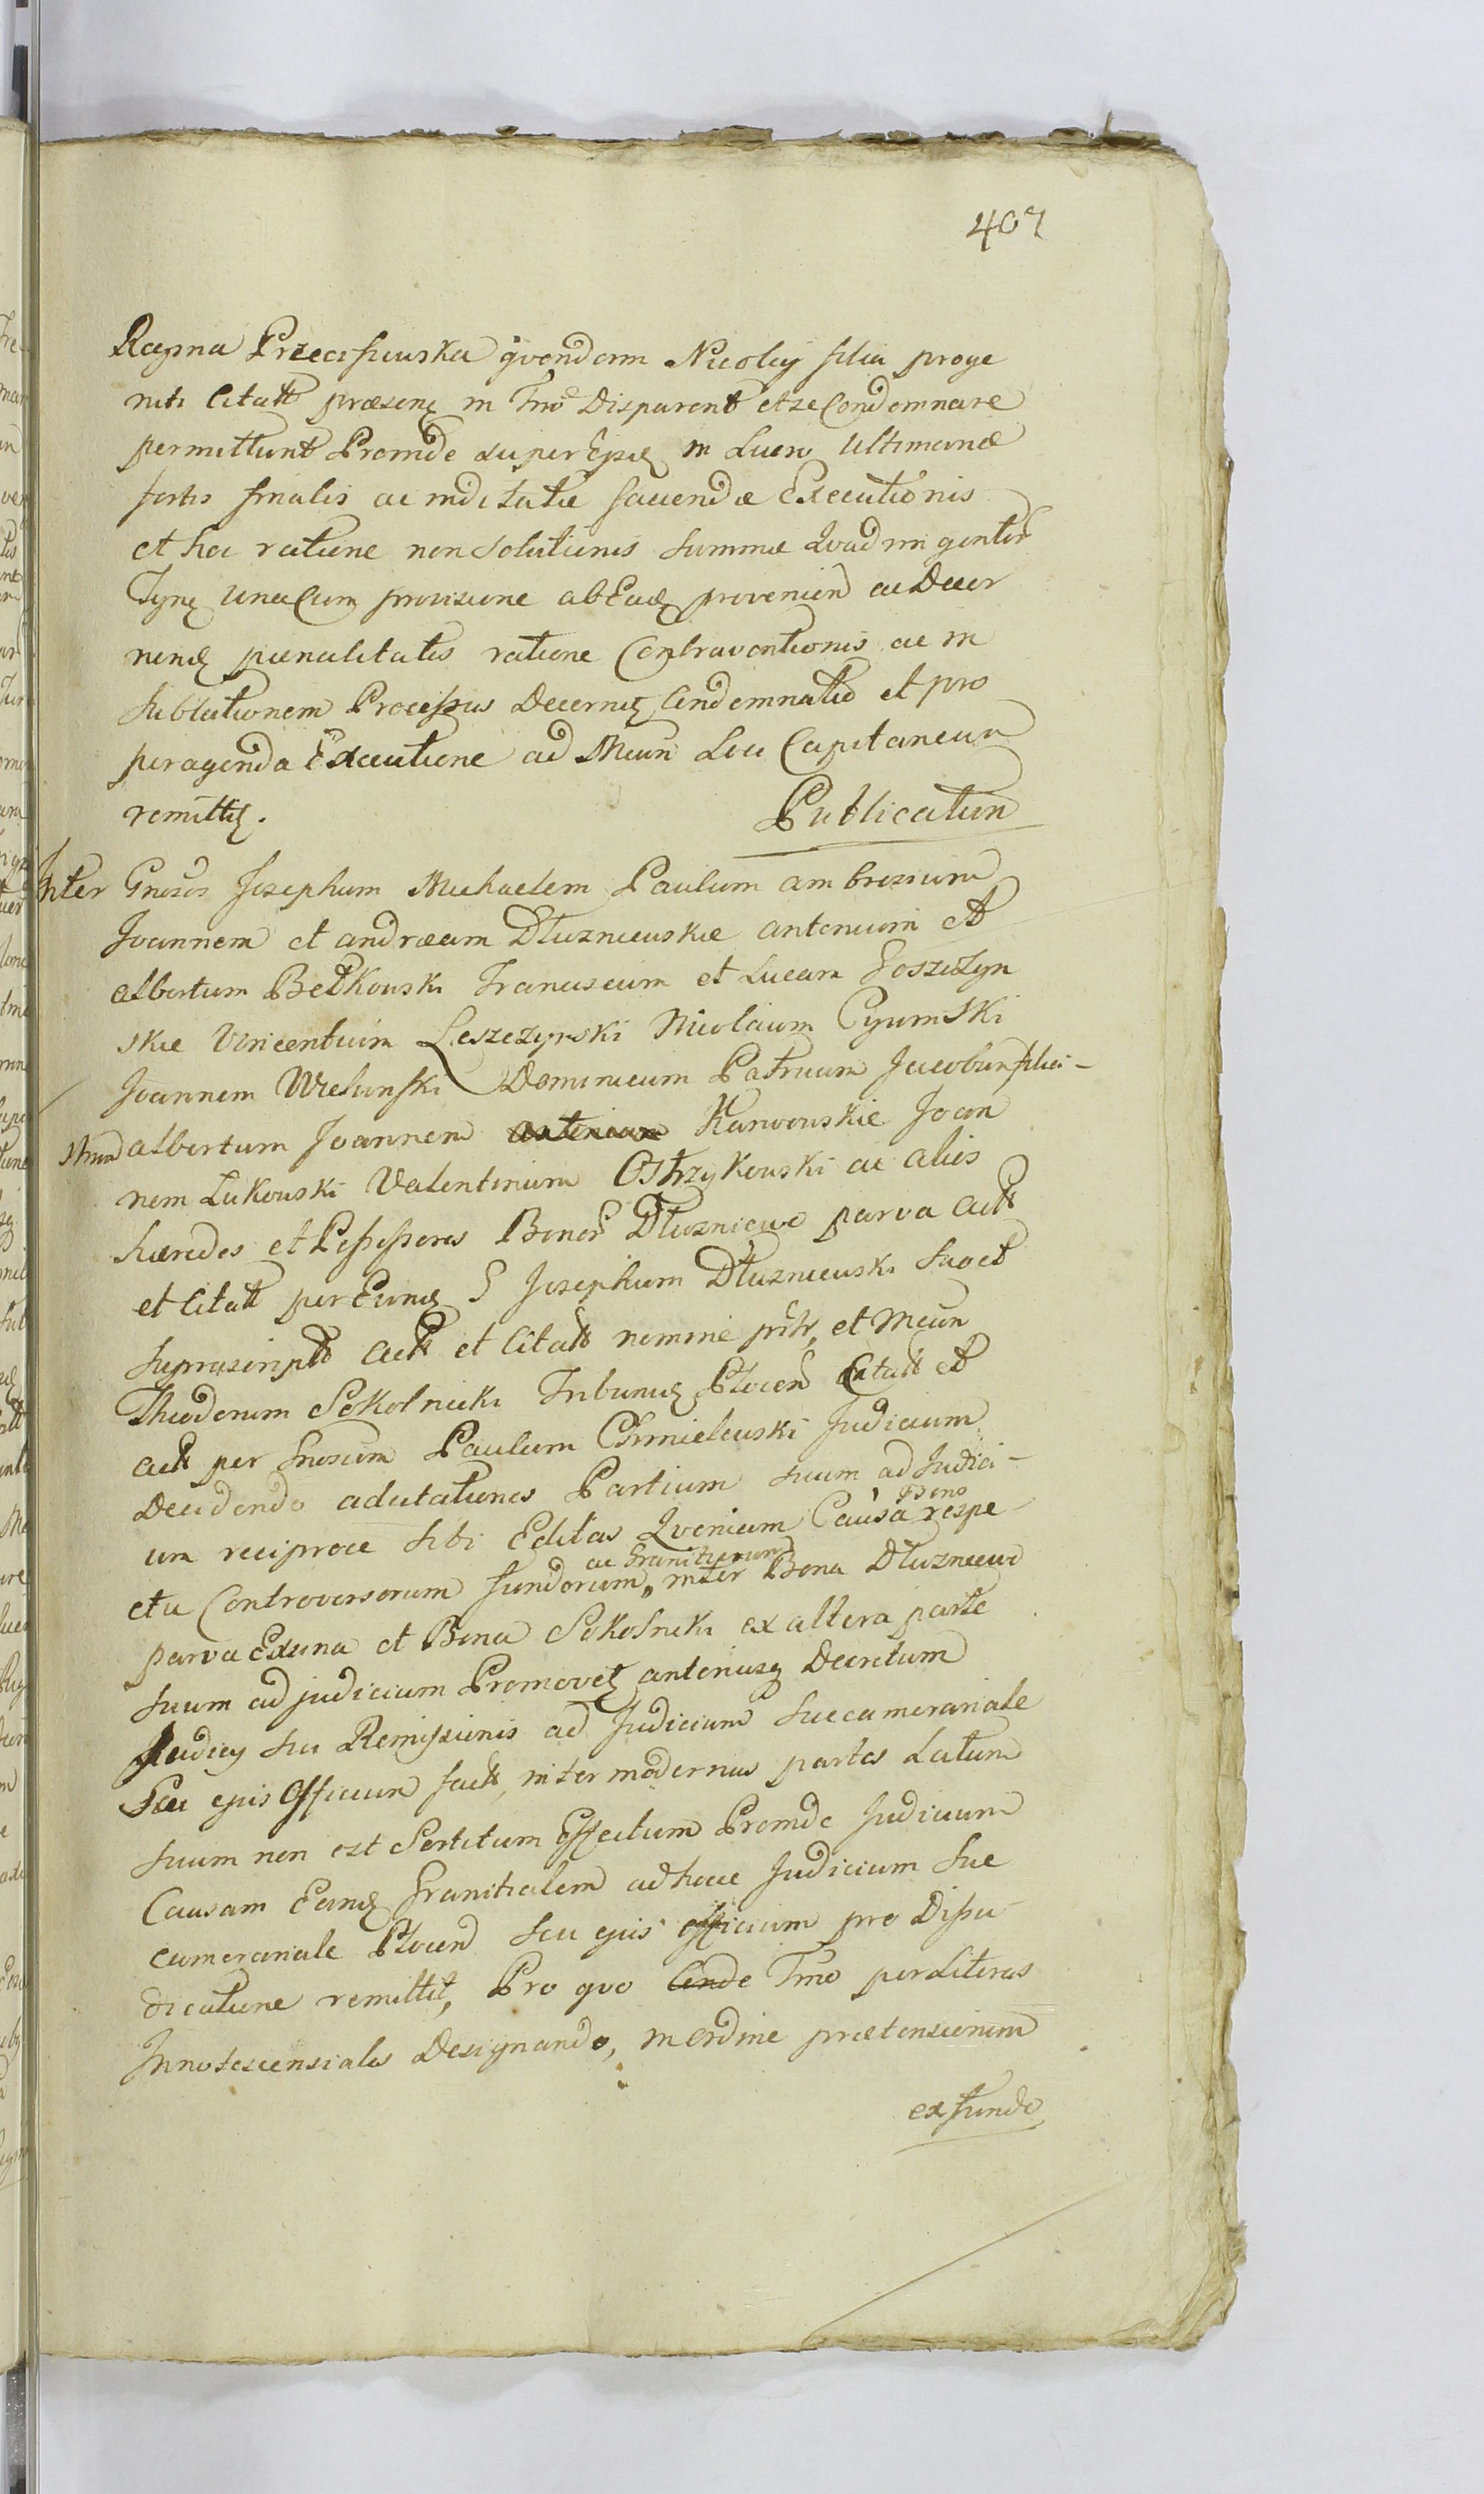 407
Regina Przeciszewska qvondam Nicolaij filia proge
niti Citatt præsenę in Tno Disparent et se Condemnare
permittunt Proinde super Ejsdę in Lucro Ultimariæ
sortis finalis ac inditatæ faciendæ Executionis
et hoc ratione non Solutionis Summæ Qvadringentor
Tynę una Cum provisione ab Eadę provenien ac Decer
nendę pænalitatis ratione Contraventionis ac in
Sublationem Processus Decernit Condemnatio et pro
peragenda Executione ad Mcum Loci Capitaneum
remittit.
Publicatum
Inter Gnosos Josephum Michaelem Paulum ambrosium
Joannem et andræam Dłuzniewskie antonium et
albertum Betkowski Franciscum et Lucam Goszczyn
skie Vincentium Leszczynski Nicolaum Cyumski
Joannem Wielunski Dominicum Patruum Jacobum filia-
strum albertum Joannem antonium Karwowskie Joan
nem Lukowski Valentinum Ostrzykowski ac alios
hæredes et Possessores Bonor Dłuzniewo parva Actt
et Citatt per Eundę G Josephum Dłuzniewski suo et
suprascriptt Actt et Citatt nomine pntr, et Mcum
Theodorum Sokolnicki Tribunię Plocen Citatt et
actt per Gnosum Paulum Chmielewski Judicium
Decidendo adcitationes Partium suum ad Judici-
um reciproce sibi Editas Qvoniam Causa Bono respe-
ctu Controversorum fundorum ac Granitierum inter Bona Dłuzniewo
parva Ex una et Bona Sokolniki ex altera parte
suum ad judicium Promovet anteriusq Decretum
Judicij sui Remissionis ad Judicium Succamerariale
Seu ejus Officium factt, inter modernas partes Latum
suum non est Sortitum Effectum Proinde Judicium
Causam Eandę Granitialem ad hocce Judicium Suc
camerariale Plocen seu ejus officium pro Disju
dicatione remittit, Pro qvo Conde Tmo per Literas
Innotescensiales Designando, in ordine prætensionum
ex fundo